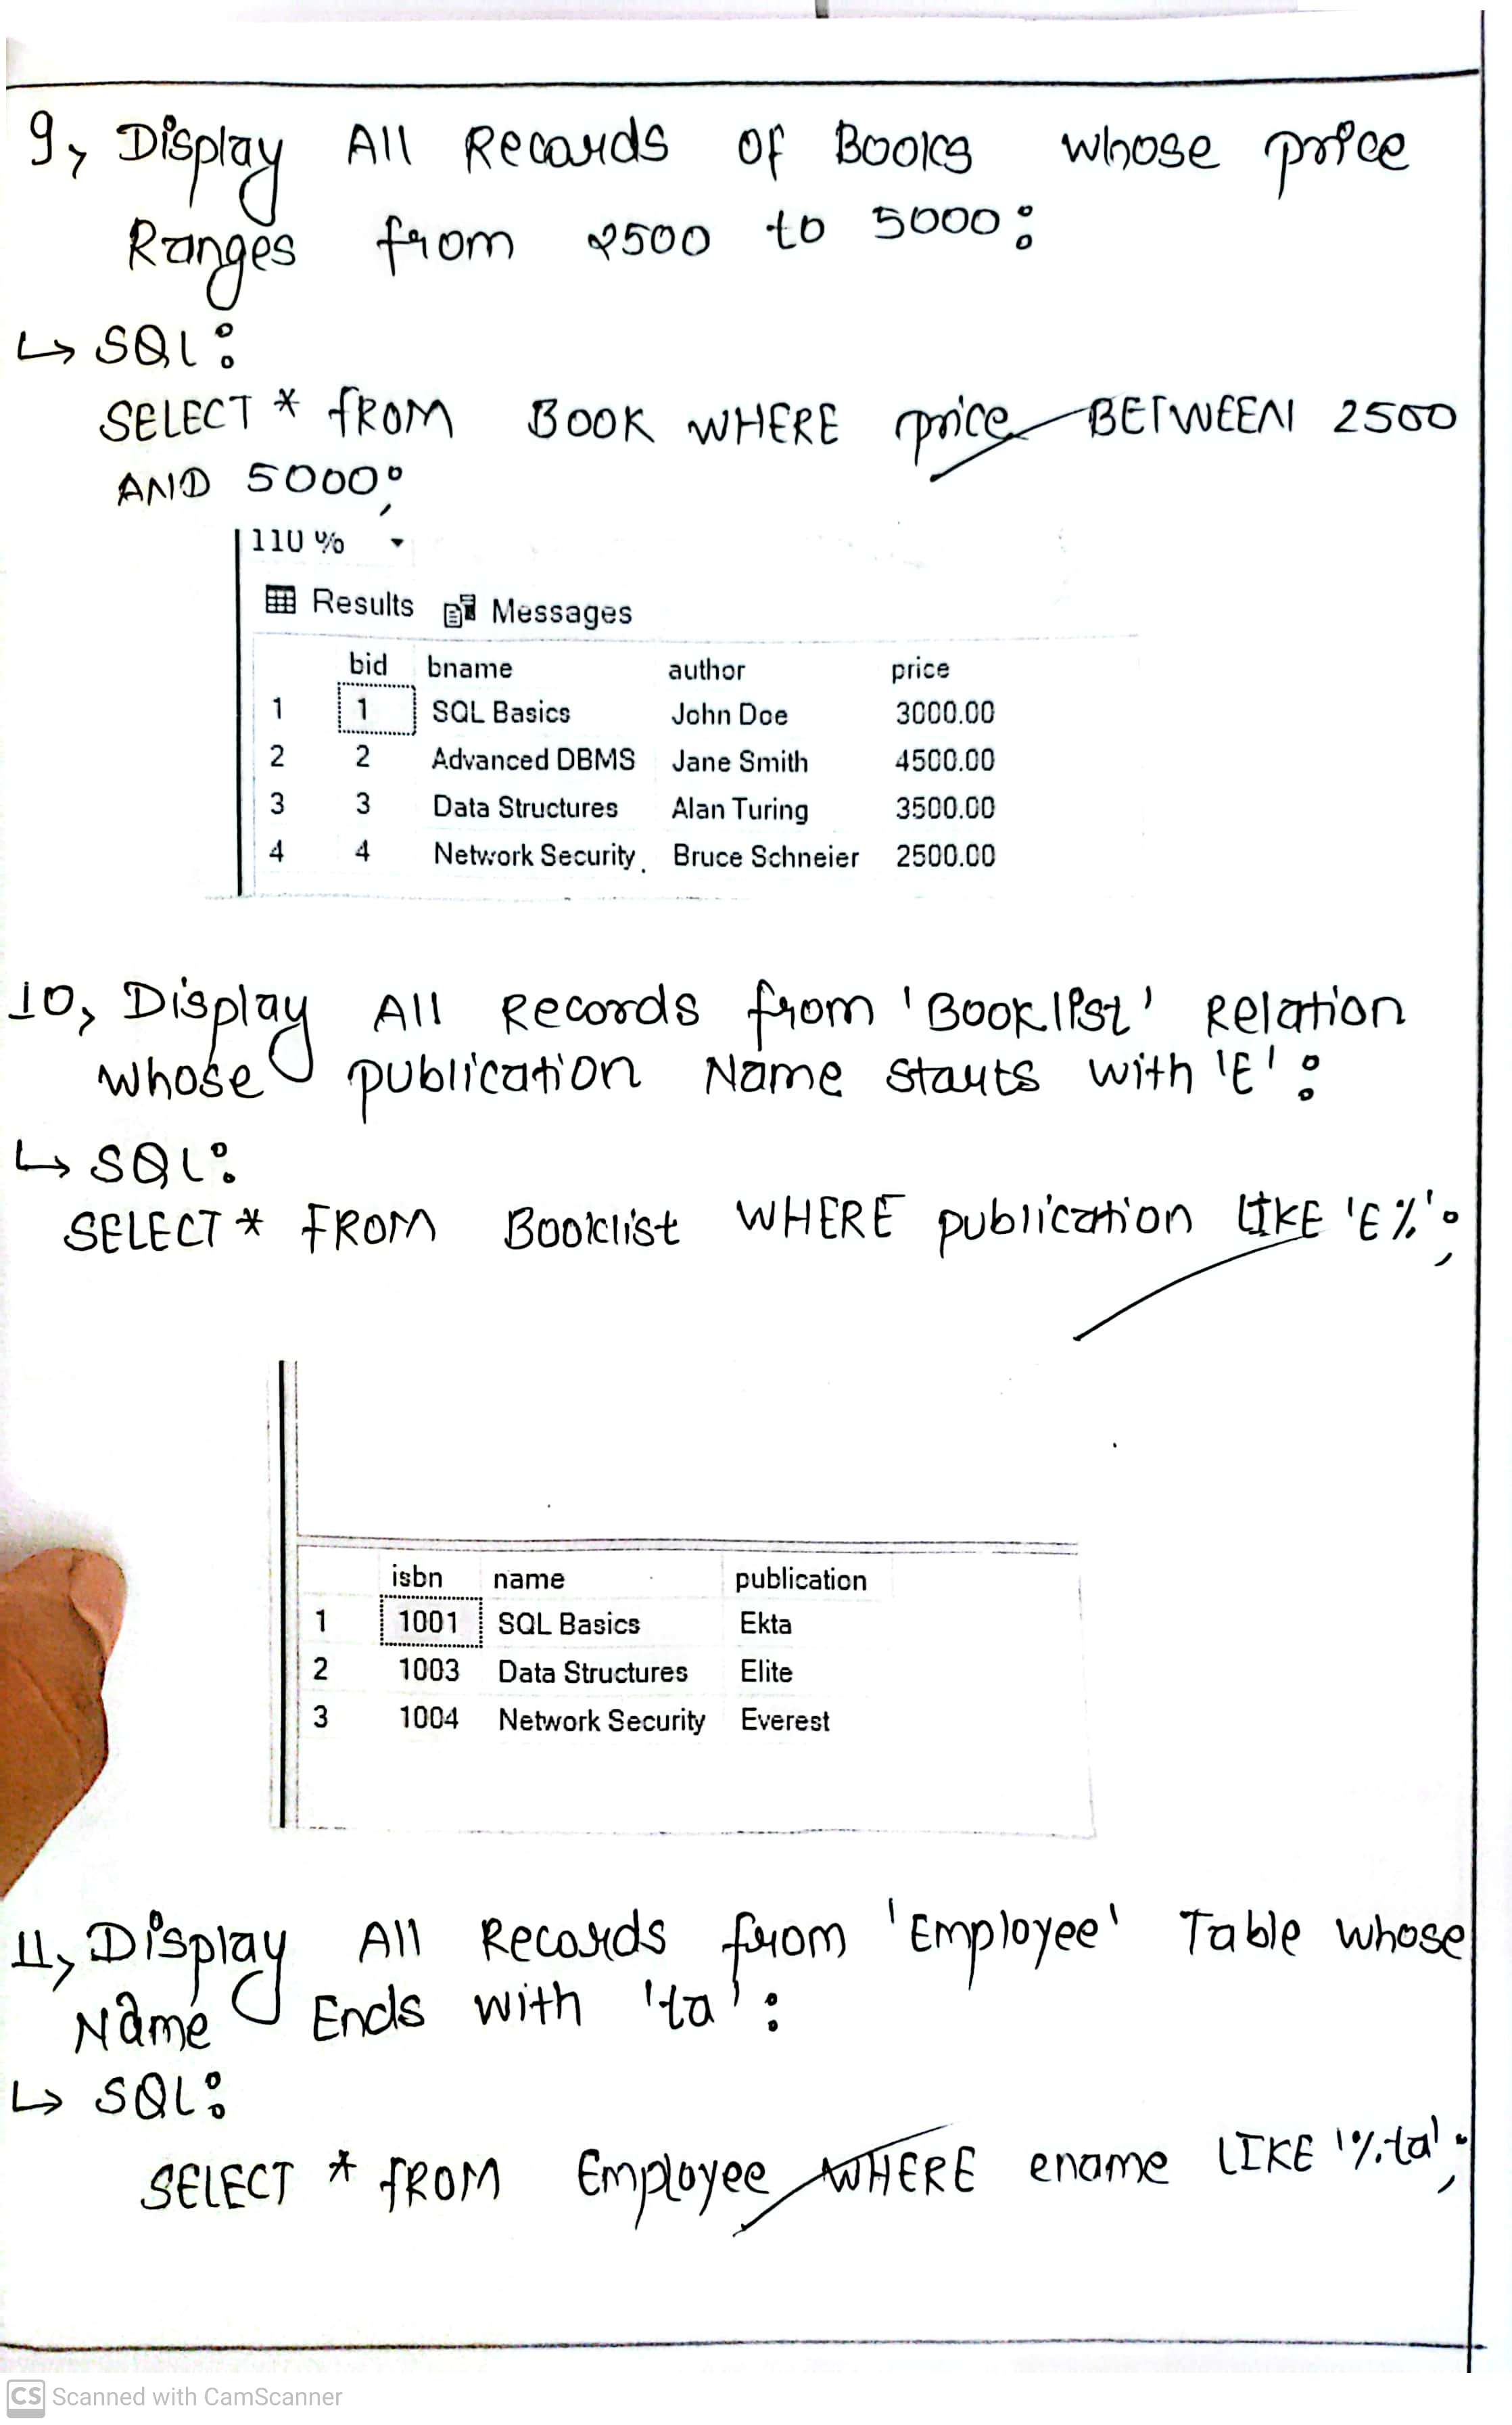 9, Display All Records of Books whose price
Ranges from 2500 to 5000:
↳ SQL:
SELECT * FROM BOOK WHERE price BETWEEN 2500
AND 5000;
110 %
Results Messages
bid bname author price
1 1 SQL Basics John Doe 3000.00
2 2 Advanced DBMS Jane Smith 4500.00
3 3 Data Structures Alan Turing 3500.00
4 4 Network Security Bruce Schneier 2500.00
10, Display All Records from 'Booklist' Relation
whose publication Name starts with 'E':
↳ SQL:
SELECT * FROM Booklist WHERE publication LIKE 'E%';
isbn name publication
1 1001 SQL Basics Ekta
2 1003 Data Structures Elite
3 1004 Network Security Everest
11, Display All Records from 'Employee' Table whose
Name Ends with 'ta':
↳ SQL:
SELECT * FROM Employee WHERE ename LIKE '%ta';
CS Scanned with CamScanner